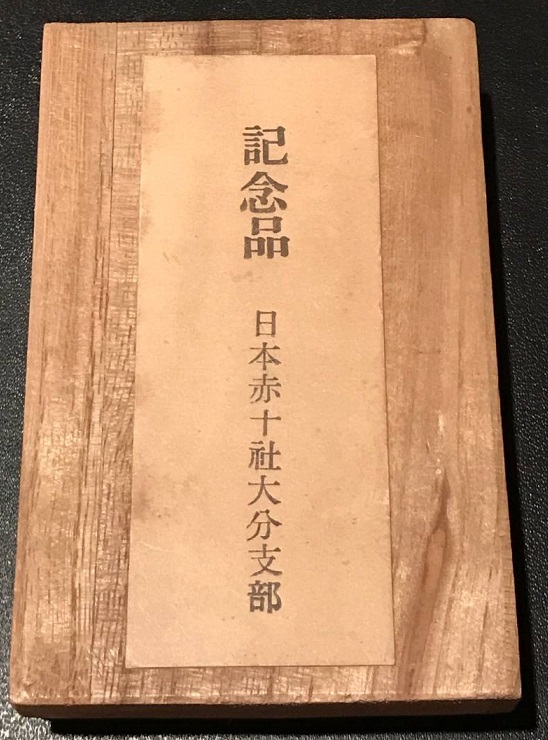 記念品
日本赤十社大分支部